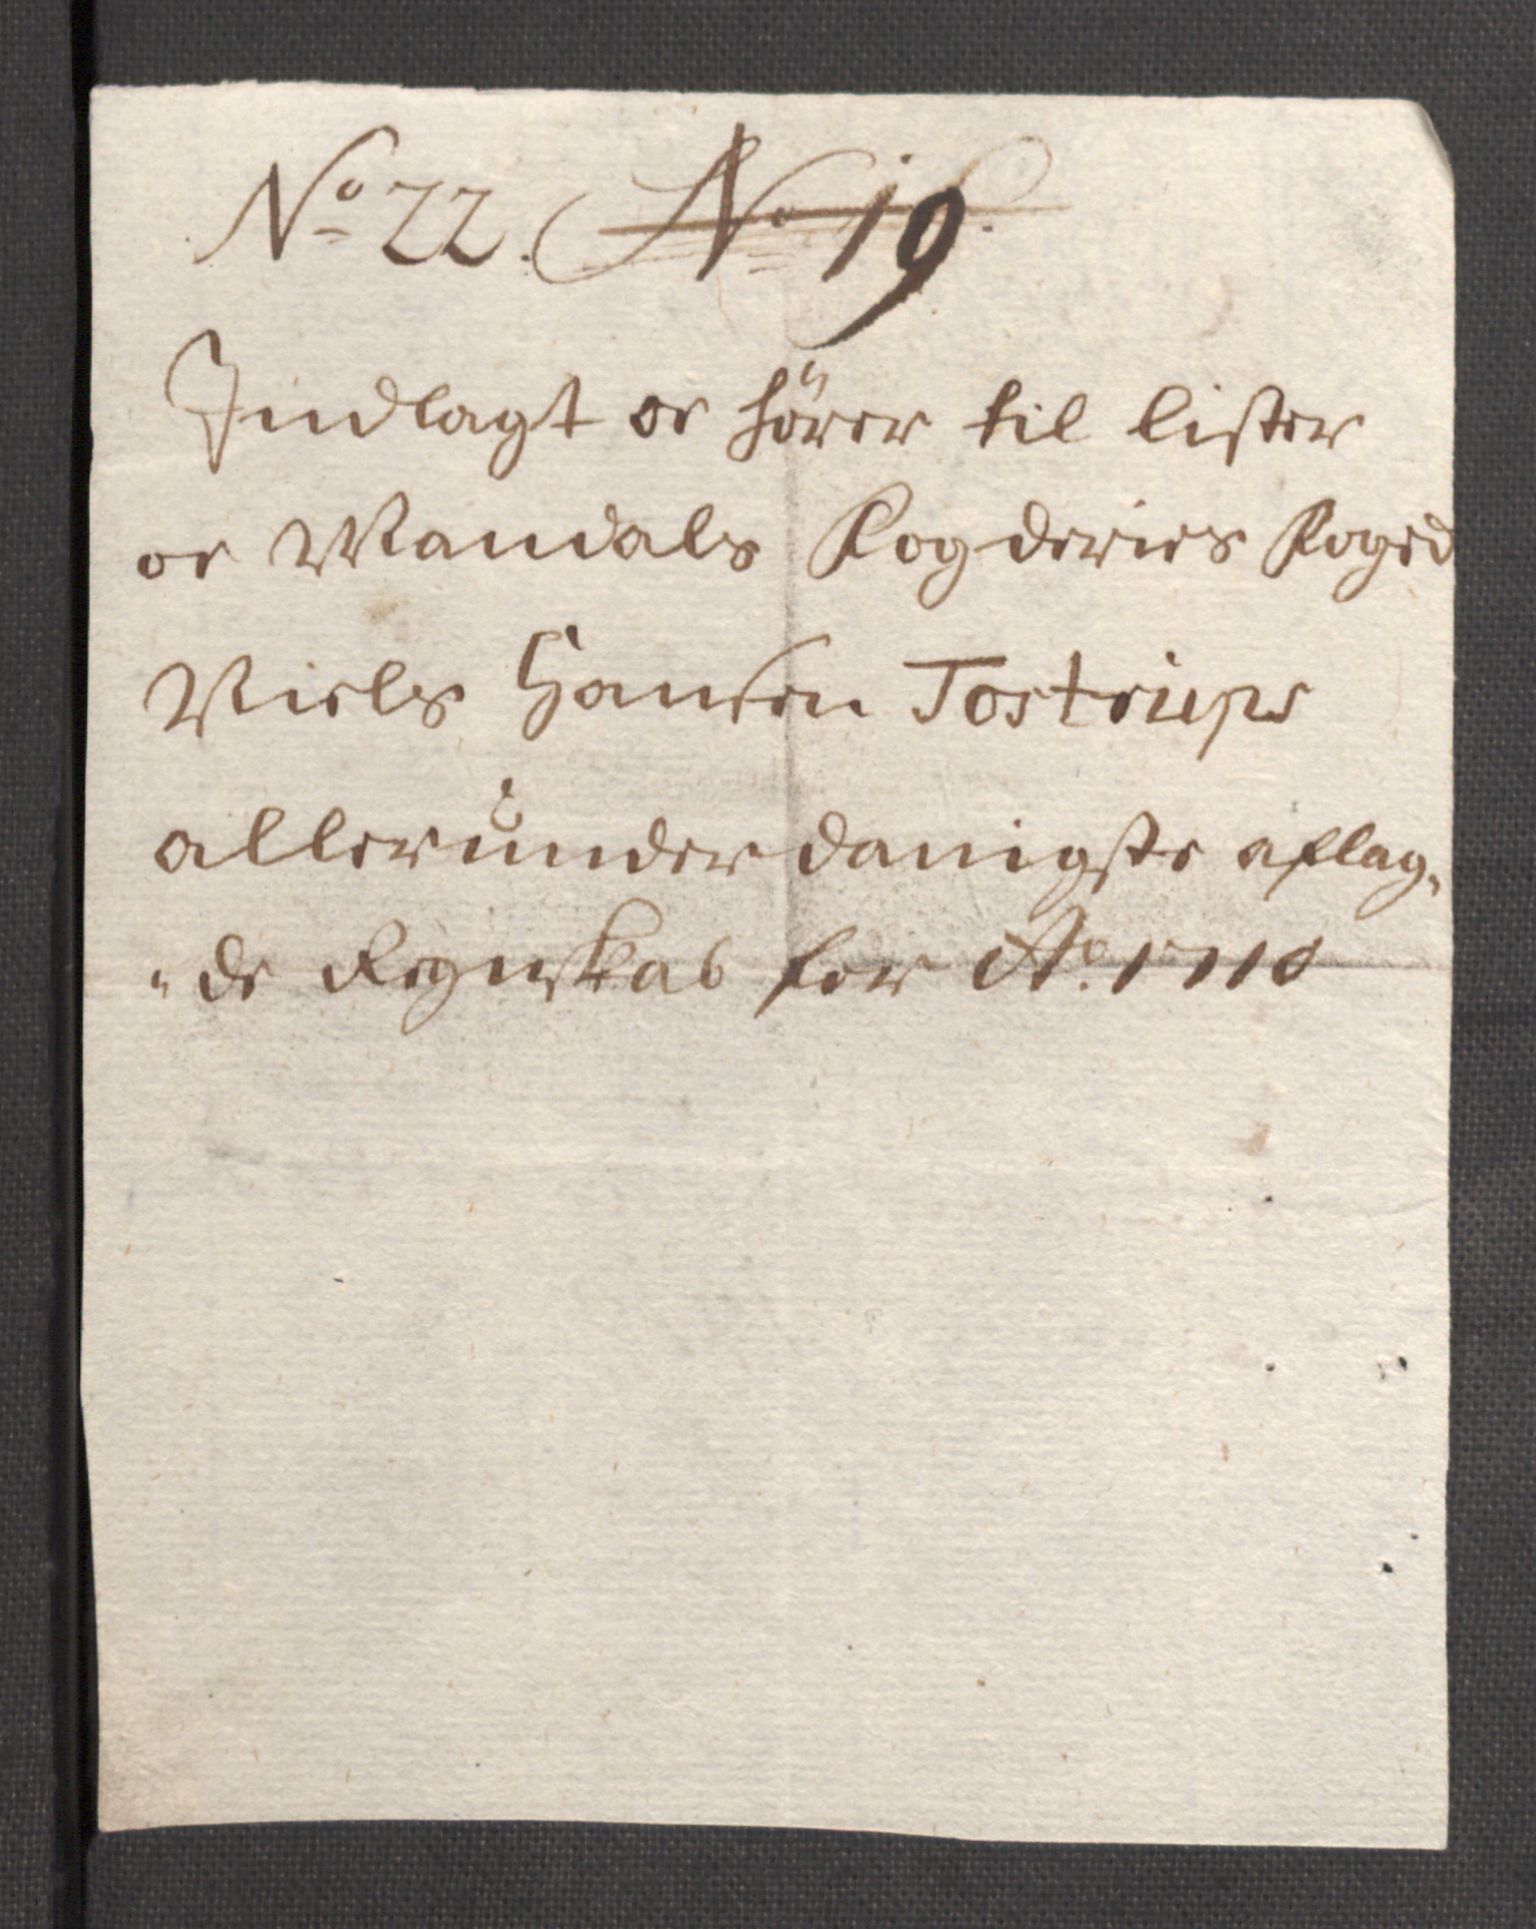 No 22. No 19.
Indlagt oc hörer til Lister
oc Mandals Fogderies Foged
Niels Hansen Tostrups
allerunderdanigste aflag„
„de Regnskab for Ao. 1710